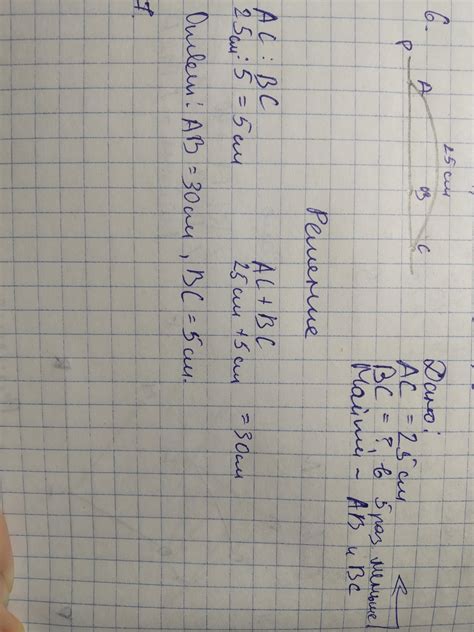 6.
P A B C
25 см
Дано:
AC = 25 см
BC = ?, в 5 раз меньше
Найти - AB и BC
Решение
AC : BC
25см : 5 = 5 см
AC + BC
25см + 5см = 30см
Ответ: AB = 30см, BC = 5см.
7.